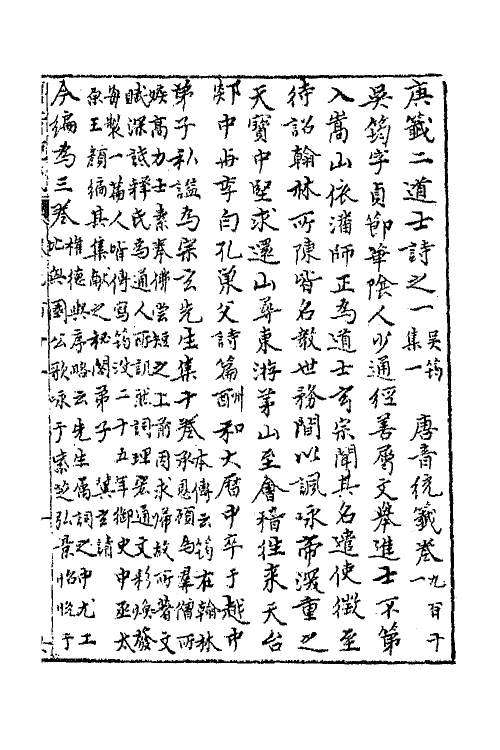 庚籤二道士詩之一 吳筠集一 唐音統籤卷九百十一
吳筠字貞節華陰人少通經善屬文舉進士不第
入嵩山依潘師正為道士玄宗聞其名遣使徵至
待詔翰林所陳皆名教世務間以諷咏帝深重之
天寶中堅求還山尋東游茅山至會稽往來天台
剡中與李白孔巢父詩篇酬和大曆中卒于越中
弟子私謚為宗玄先生集十卷本傳云筠在翰林承恩顧為羣僧所
嫉高力士素奉佛嘗短之上前因求歸故所著文
賦深詆釋氏為通人所譏然詞理宏通文彩煥發
每製一篇人皆傳寫筠沒二十五年御史中丞太
原王顏編其集獻之秘閣弟子冀玄請
權德輿序略云先生屬詞之中尤工
今編為三卷比興國公歌咏于紫芝弘景怡悅于